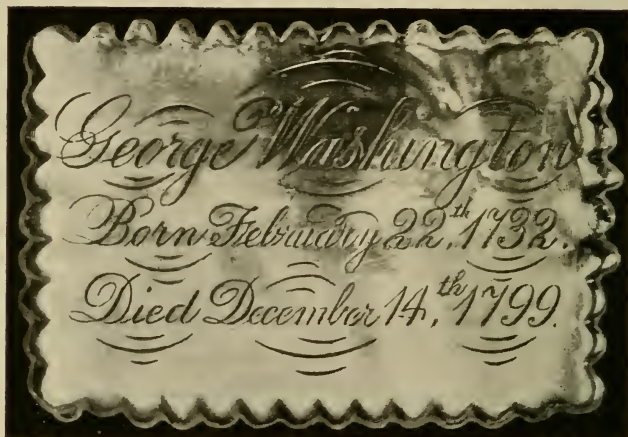 George Washington
Born February 22.th 1732.
Died December 14.th 1799.